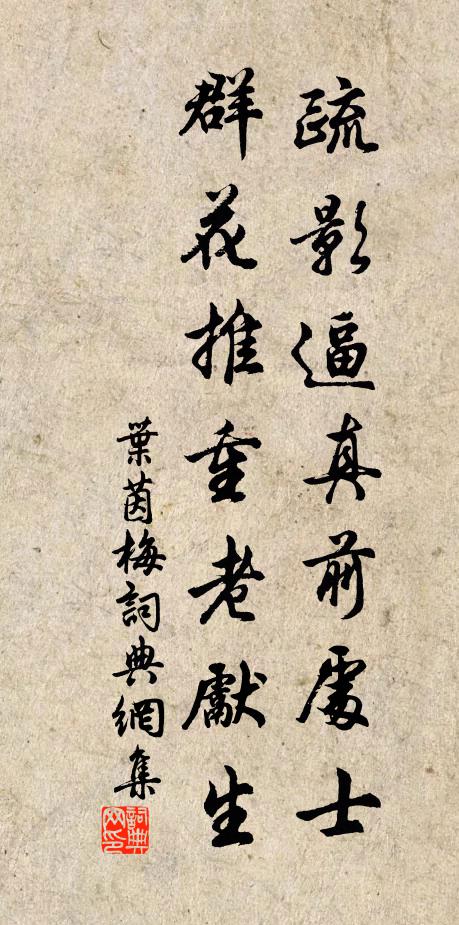 疏影逼真前處士
群花推重老獻生
葉茵梅詞典網集
詞典网印